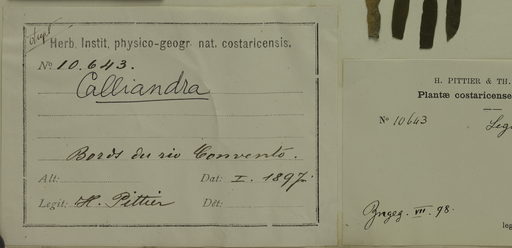 Herb. Instit. physico-geogr. nat. costaricensis.
No 10.643.
Calliandra
Bords du rio Convento.
Alt: Dat: I. 1897.
Legit: H. Pittier Dét:
H. PITTIER & TH.
Plantæ costaricense
No 10643
Legi
VII. 98.
leg